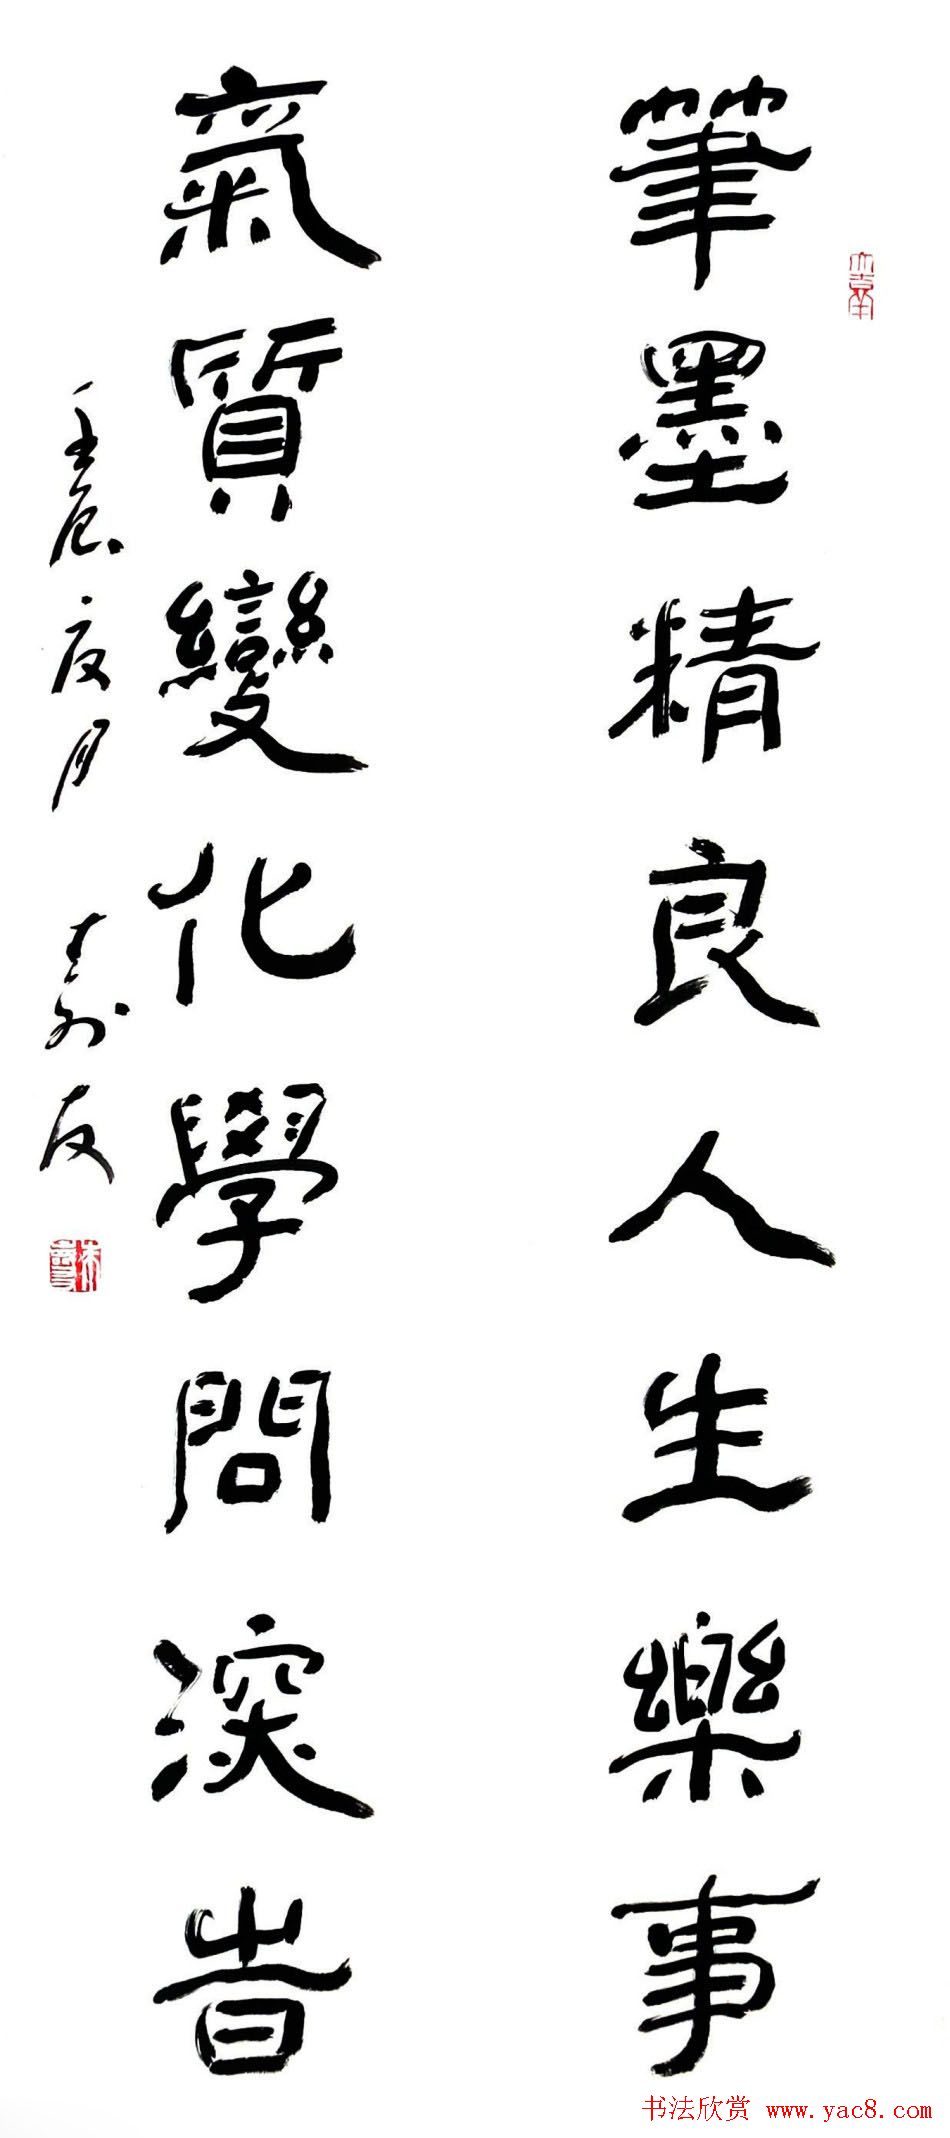 筆墨精良人生樂事
氣質變化學問深旹
壬辰夏月 壽友
书法欣赏 www.yac8.com